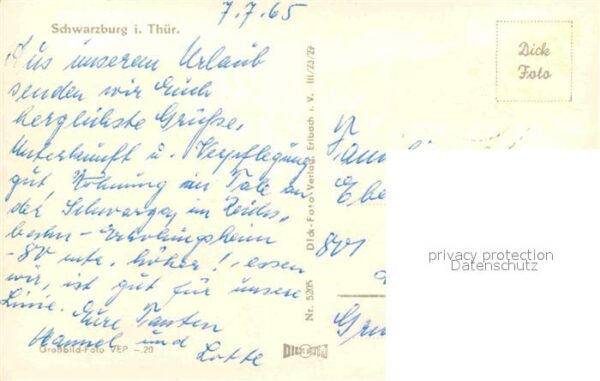 7.7.65
Schwarzburg i. Thür.
Aus unserem Urlaub
senden wir Euch
herzlichste Grüße.
Unterkunft u. Verpflegung
gut, Wohnung im Tale an
der Schwarza, im Reichs-
bahn-Erholungsheim
höher! essen
wir, ist gut für unsere
Linie. Eure Tanten
Hannel und
Lotte
Großbild-Foto VEP -.20
Dick-Foto-Verlag, Erlbach i. V. III/23/29
Nr. 5205
DICK
Dick
Foto
801
privacy protection
Datenschutz